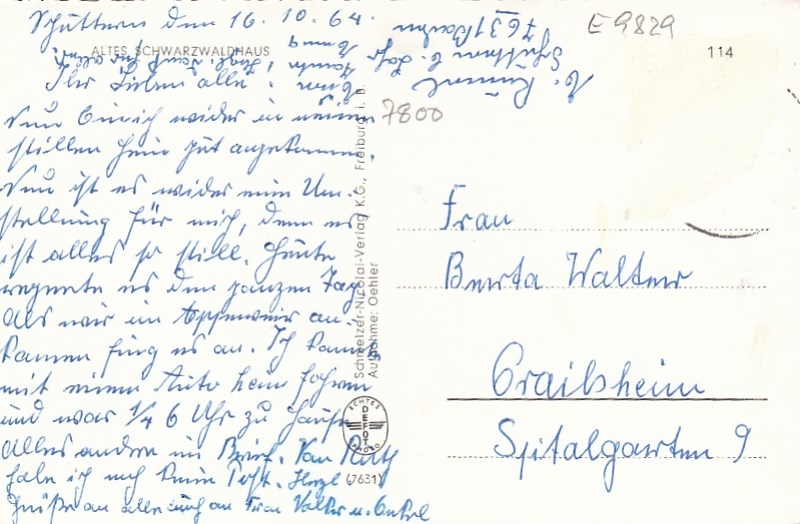 Schuttern den 16.10.64.
ALTES SCHWARZWALDHAUS
Ihr Lieben alle!
Nun bin ich wider in meinem
stillen Heim gut angekommen.
Nun ist es wider eine Um-
stellung für mich, denn es
ist alles so still. Heute
regnete es den ganzen Tag,
als wir in Appenweier an-
kamen fing es an. Ich konnte
mit einem Auto heim fahren
und war 1/4 6 Uhr zu Hause
Alles andere im Brief. Von Ruth
habe ich noch keine Post. Herzl
Grüße an alle auch an Frau Walter u. Enkel
7631 Baden
Schuttern b. Lahr
E 9829
114
7800
Schmelzer-Nicolai-Verlag K.G., Freiburg i. B.
Aufnahme: Oehler
ECHTES
DEFOT
FOTO
(7631)
Frau
Berta Walter
Crailsheim
Spitalgarten 9